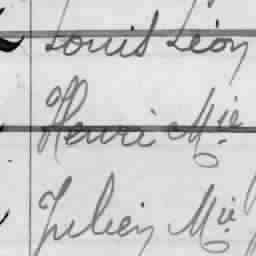 Louis Léon
Henri Mie
Julien Mie